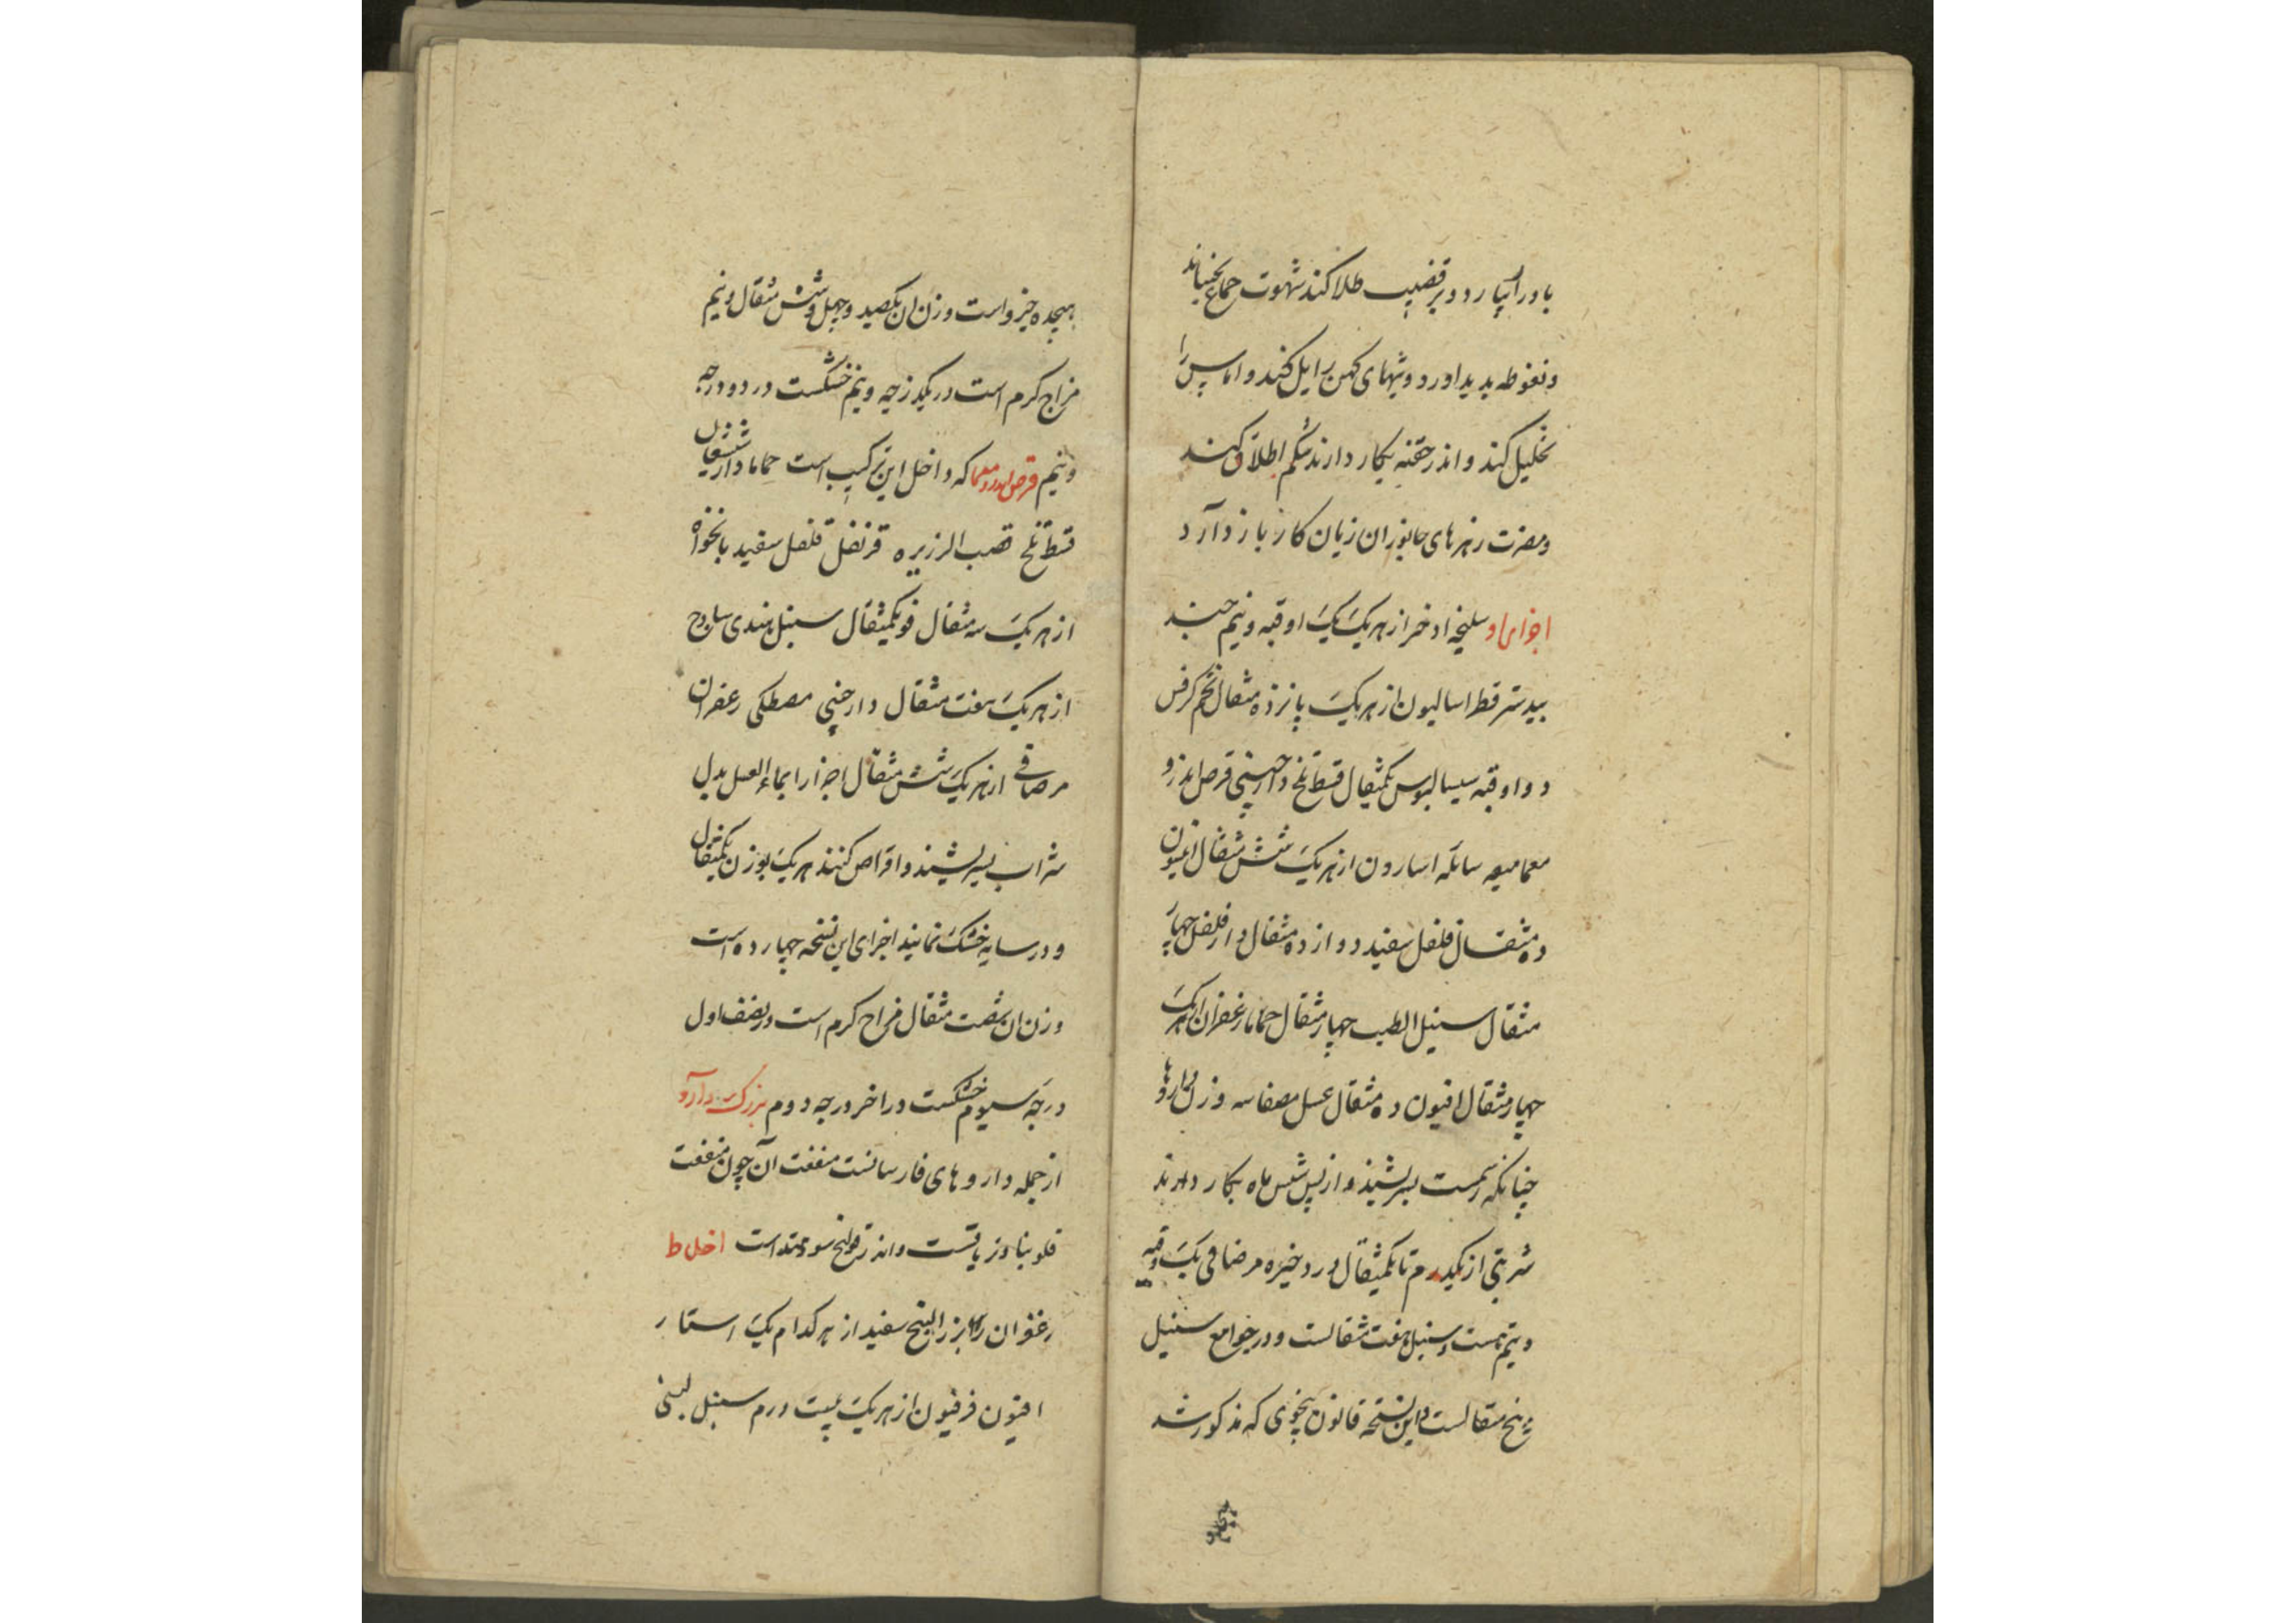 باد را ببارد و بر قضیب طلا کند شهوت جماع بجنباند
و نعوظ پدید اورد و تبهای کهن زایل کند و اماس را
تحلیل کند و اندر حقنه بکار دارند شکم اطلاق کند
و مضرت زهرهای جانوران زیان کار باز دارد
اجزای او سلیخه اذخر از هر یک یک اوقیه و نیم جند
بیدستر فطراسالیون از هر یک پانزده مثقال تخم کرفس
دو اوقیه سیسالیوس یکمثقال قسط تلخ دارچینی قرص اندرو
معما میعه سائله اسارون از هر یک شش مثقال انیسون
ده مثقال فلفل سفید دوازده مثقال دارفلفل چهار
مثقال سنبل الطیب چهار مثقال حماما زعفران از هر یک
چهار مثقال افیون ده مثقال عسل مصفا سه وزن داروها
چنانکه رسمست بسرشند و از پس شش ماه بکار دارند
شربتی از یکدرم تا یکمثقال و در ذخیره مر صافی یک اوقیه
و نیم است و سنبل هفت مثقالست و در جوامع سنبل
پنج مثقالست و این نسخه قانون بنحوی که مذکور شد
هیجده جزو است وزن ان یکصد و چهل و شش مثقال و نیم
مزاج کرم است در یکدرجه و نیم خشکست در دو درجه
و نیم قرص اندرومعما که داخل این ترکیب است حماما دارشیشعان
قسط تلخ قصب الزریره قرنفل فلفل سفید نانخواه
از هر یک سه مثقال فو یکمثقال سنبل هندی ساذج
از هر یک هفت مثقال دارچینی مصطکی زعفران
مر صافی از هر یک شش مثقال اجزا را بماء العسل بدل
شراب بسرشند و اقراص کنند هر یک بوزن یکمثقال
و در سایه خشک نمایند اجزای این نسخه چهارده است
وزن ان شصت مثقال مزاج کرم است در نصف اول
درجه سیوم خشکست در اخر درجه دوم بزرک دارو
از جمله داروهای فارسانست منفعت آن چون منفعت
فلونیا و زیاتست و اندر قولنج سودمند است اخلاط
زعفران بزرالبنج سفید از هر کدام یک استار
افیون فرفیون از هر یک بیست درم سنبل